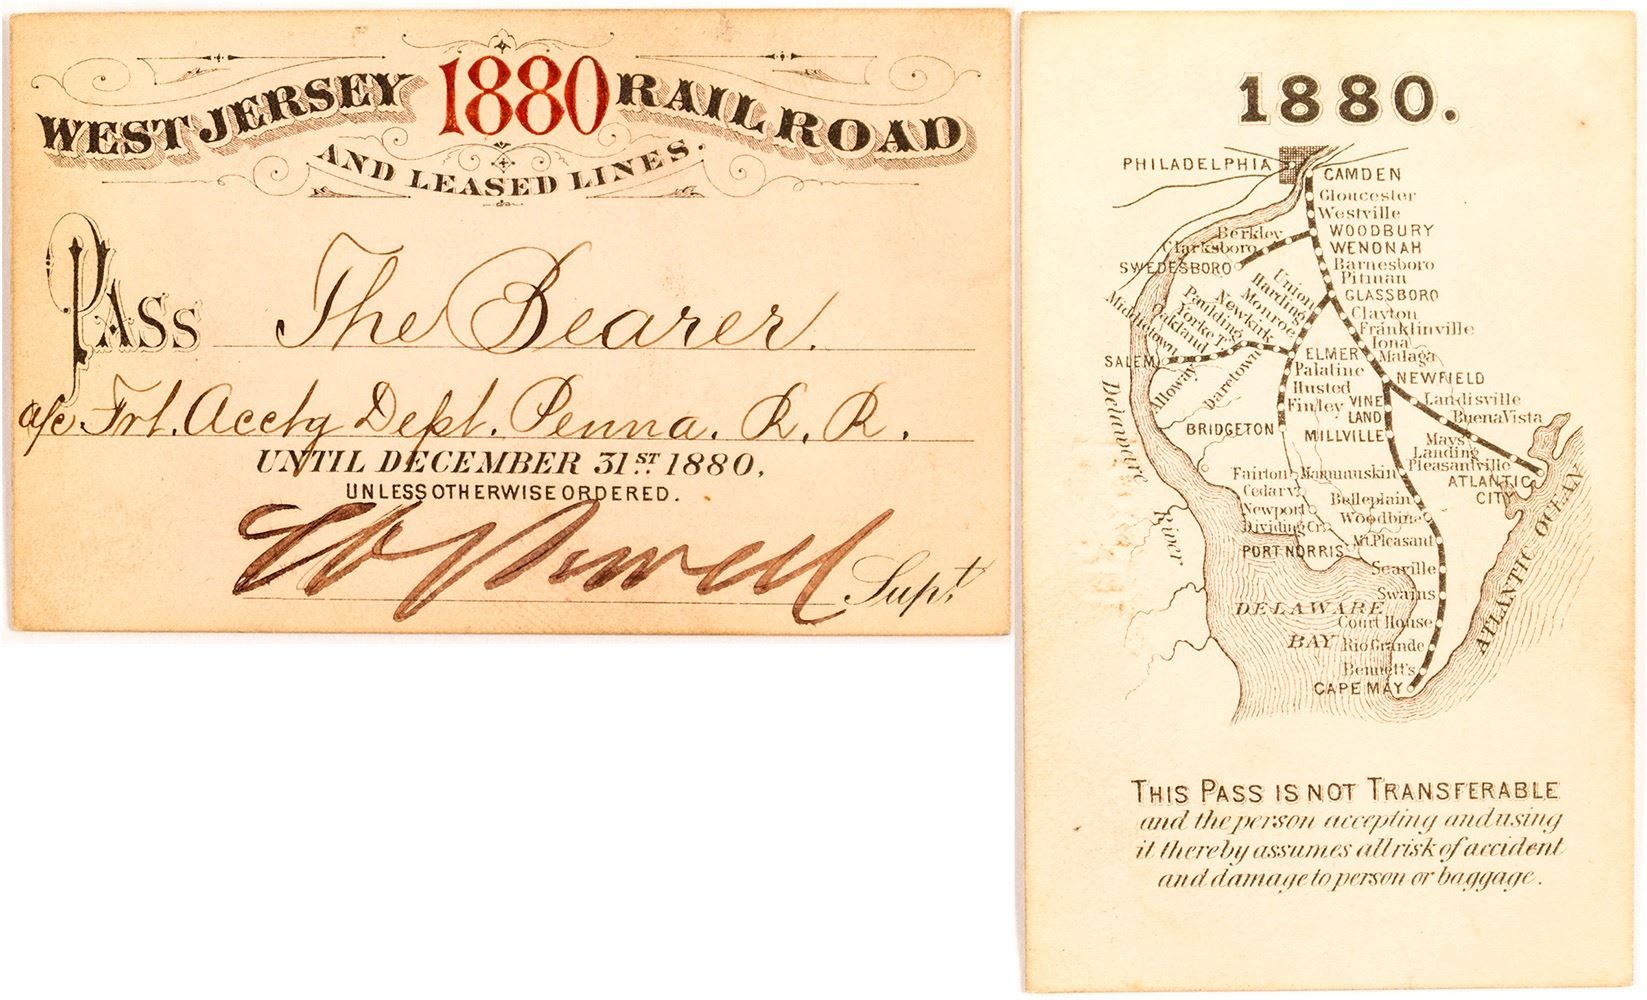 WEST JERSEY 1880 RAILROAD
AND LEASED LINES.
PASS The Bearer.
a/c Frt. Acctg Dept. Penna. R. R.
UNTIL DECEMBER 31ST 1880,
UNLESS OTHERWISE ORDERED.
Supt.
1880.
PHILADELPHIA
CAMDEN
Gloucester
Westville
WOODBURY
Berkley
WENONAH
Clarksboro
SWEDESBORO
Barnesboro
Pitman
GLASSBORO
Union
Harding
Monroe
Newkirk
Paulding
Yorke T.
Oakland
Middletown
Clayton
Franklinville
Iona
Malaga
SALEM
Alloway
Daretown
ELMER
Palatine
Husted
Finley
NEWFIELD
VINE
LAND
Landisville
Buena Vista
BRIDGETON
MILLVILLE
Mays
Landing
Pleasantville
ATLANTIC
CITY
Delaware
River
Fairton
Manumuskin
Cedarv.
Belleplain
Newport
Woodbine
Dividing Cr.
Mt. Pleasant
PORT NORRIS
Seaville
Swains
DELAWARE
BAY
Court House
Rio Grande
Bennett's
CAPE MAY
ATLANTIC OCEAN
THIS PASS IS NOT TRANSFERABLE
and the person accepting and using
it thereby assumes all risk of accident
and damage to person or baggage.